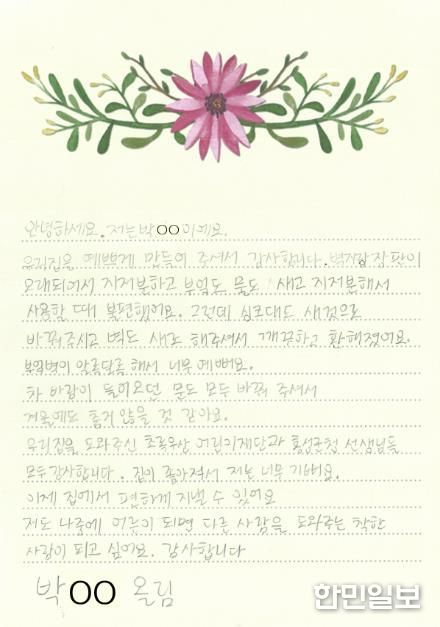 안녕하세요. 저는 박OO이예요.
우리집을 예쁘게 만들어 주셔서 감사합니다. 벽지랑 장판이
오래되어서 지저분하고 부엌도 물도 새고 지저분해서
사용할 때 불편했어요. 그런데 싱크대도 새것으로
바꿔주시고 벽도 새로 해주셔서 깨끗하고 환해졌어요.
부엌벽이 알록달록 해서 너무 예뻐요.
차 바람이 들어오던 문도 모두 바꿔 주셔서
겨울에도 춥지 않을 것 같아요.
우리집을 도와주신 초록우산 어린이재단과 홍성군청 선생님들
모두 감사합니다. 집이 좋아져서 저는 너무 기뻐요.
이제 집에서 편하게 지낼 수 있어요
저도 나중에 어른이 되면 다른 사람을 도와주는 착한
사람이 되고 싶어요. 감사합니다
박OO 올림
한민일보